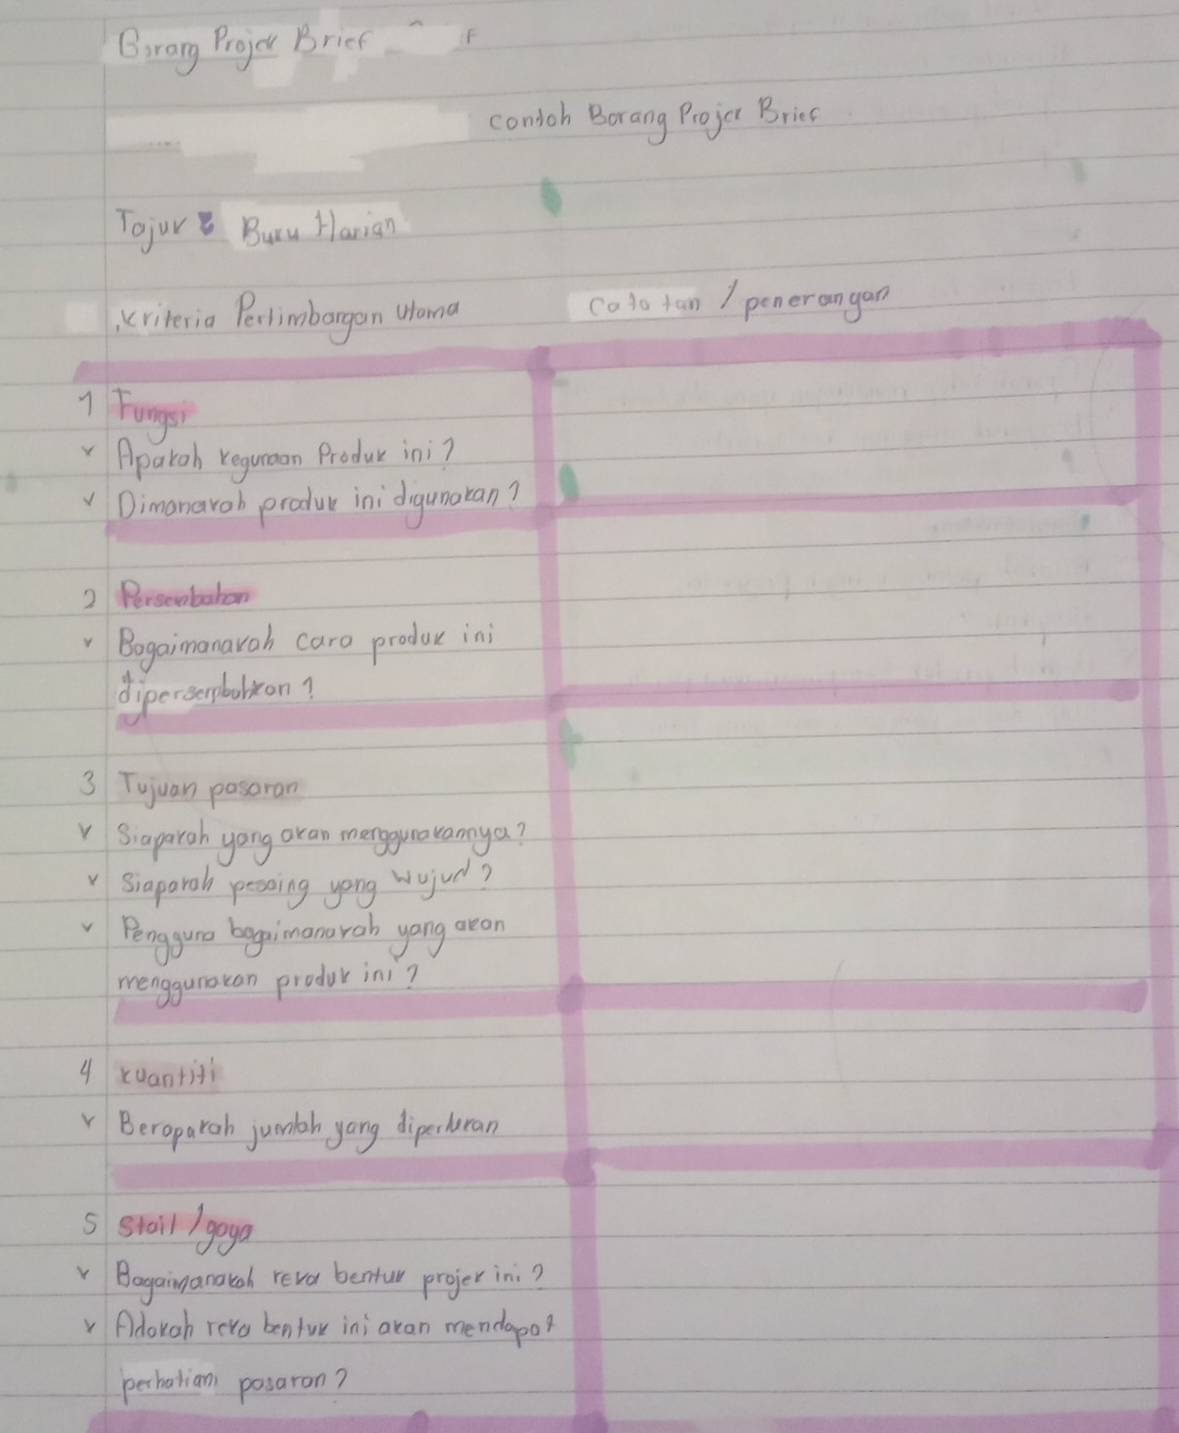 Borang Projek Brief
contoh Borang Projek Brief
Tajuk : Buku Harian
Kriteria Pertimbangan Utama
Catatan / penerangan
1 Fungsi
Apakah kegunaan Produk ini?
Dimanakah produk ini digunakan?
2 Persembahan
Bagaimanakah cara produk ini
dipersembahkan?
3 Tujuan pasaran
Siapakah yang akan menggunakannya?
Siapakah pesaing yang wujud?
Pengguna bagaimanakah yang akan
menggunakan produk ini?
4 kuantiti
Berapakah jumlah yang diperlukan
5 Stail / gaya
Bagaimanakah reka bentuk projek ini?
Adakah reka bentuk ini akan mendapat
perhatian pasaran?